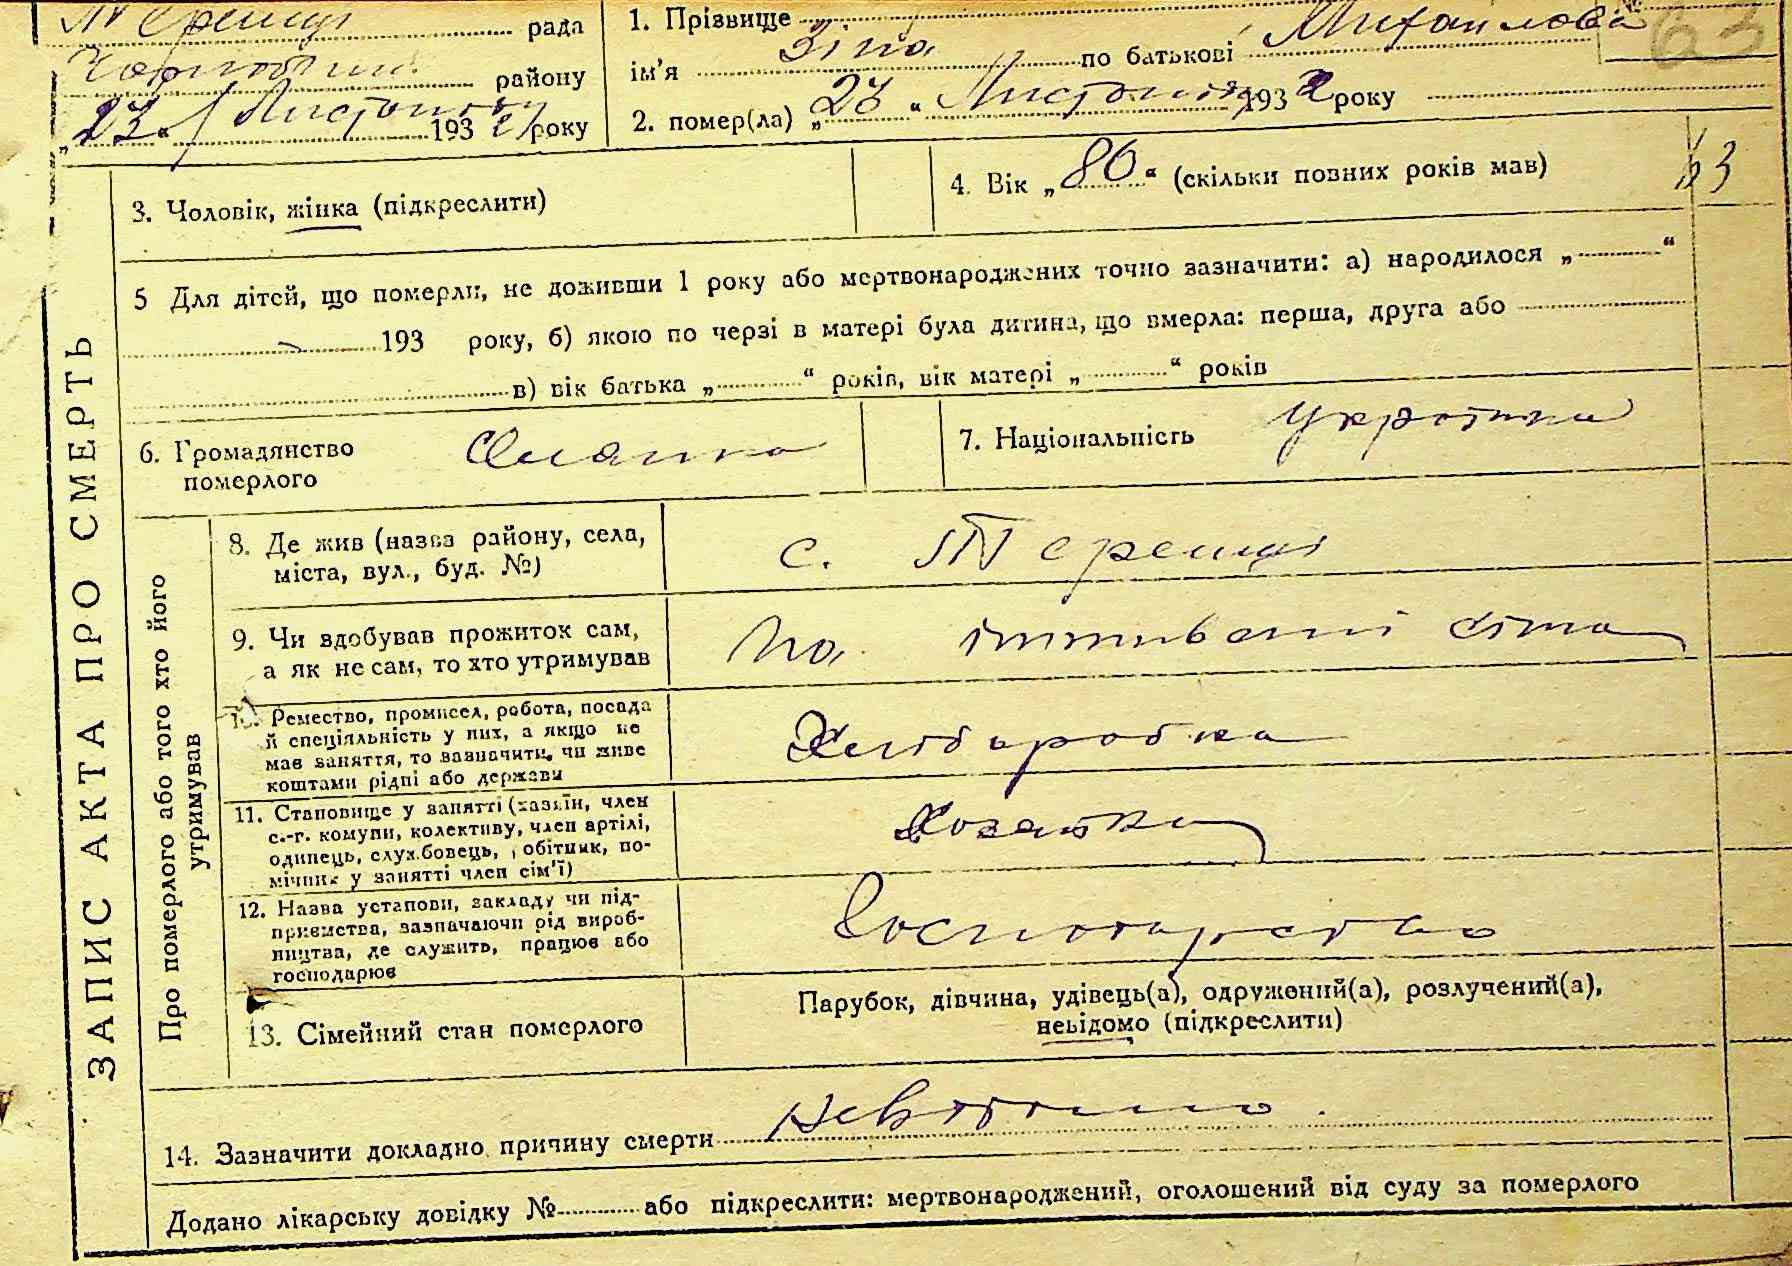 Тереmці рада
району
„23“ Листопаду 1932 року
1. Прізвище
ім'я Зіна по батькові Михайлова
2. помер(ла) „23“ Листопаду 1932 року
63
3. Чоловік, жінка (підкреслити)
4. Вік „86“ (скільки повних років мав)
63
5 Для дітей, що померли, не доживши 1 року або мертвонароджених точно зазначити: а) народилося „ “
193 року, б) якою по черзі в матері була дитина, що вмерла: перша, друга або
в) вік батька „ “ років, вік матері „ “ років
6. Громадянство
померлого
7. Національність Українка
ЗАПИС АКТА ПРО СМЕРТЬ
Про померлого або того хто його
утримував
8. Де жив (назва району, села,
міста, вул., буд. №)
с. Теремці
9. Чи здобував прожиток сам,
а як не сам, то хто утримував
На сина
10. Ремество, промисел, робота, посада
й спеціяльність у них, а якщо не
мав заняття, то зазначити, чи живе
коштами рідні або держави
Хліборобка
11. Становище у занятті (хазяїн, член
с.-г. комуни, колективу, член артілі,
одинець, службовець, робітник, по-
мічник у занятті член сім'ї)
Хозяйка
12. Назва установи, закладу чи під-
приємства, зазначаючи рід вироб-
ництва, де служить, працює або
господарює
Господарство
13. Сімейний стан померлого
Парубок, дівчина, удівець(а), одружений(а), розлучений(а),
невідомо (підкреслити)
14. Зазначити докладно причину смерти невідомо
Додано лікарську довідку № або підкреслити: мертвонароджений, оголошений від суду за померлого